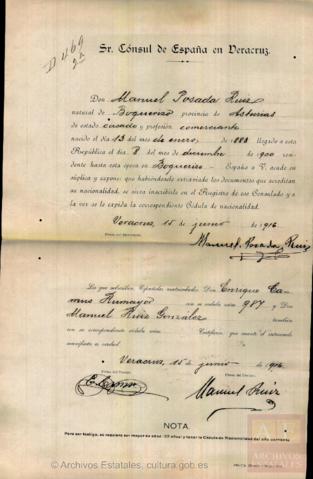 D 469
2ª
Sr. Cónsul de España en Veracruz.
Don Manuel Posada Ruiz
natural de Boquerizo provincia de Asturias
de estado casado y profesión comerciante
nacido el día 13 del mes de enero, de 1888 llegado a esta
República el día 8 del mes de diciembre de 1900 resi-
dente hasta esta época en Boquerizo España a V. acude en
súplica y expone: que habiéndosele extraviado los documentos que acreditan
su nacionalidad, se sirva inscribirle en el Registro de ese Consulado y a
la vez se le expida la correspondiente Cédula de nacionalidad.
Veracruz, 15 de junio de 1916
Firma del Interesado,
Manuel Posada Ruiz
Los que subscriben, Españoles matriculados, Don Enrique Ca-
mus Humayor con su cédula núm. 987 y Don
Manuel Ruiz González también
con su correspondiente cédula núm. Certifican: que cuanto el interesado
manifiesta es verdad.
Veracruz, 15 de junio de 1916
Firma del Testigo, Firma del Testigo,
E. Camus Manuel Ruiz
NOTA.
Para ser testigo, se requiere ser mayor de edad (23 años) y tener la Cédula de Nacionalidad del año corriente
ARCHIVOS
ESTATALES
© Archivos Estatales, cultura.gob.es